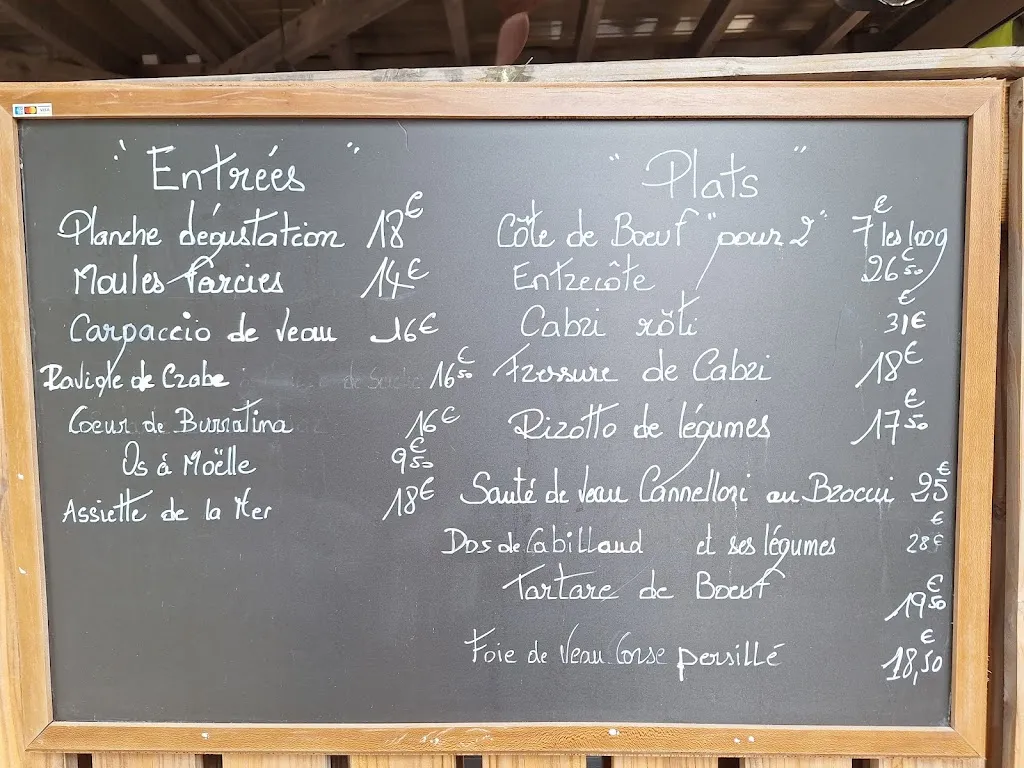 " Entrées "
Planche dégustation 18€
Moules farcies 14€
Carpaccio de veau 16€
Ravigte de Crabe 16€50
Coeur de Burratina 16€
Os à Moëlle 9€50
Assiette de la Mer 18€
" Plats "
Côte de Boeuf "pour 2" 7€ les 100g
Entrecôte 26€50
Cabri rôti 31€
Fressure de Cabri 18€
Rizotto de légumes 17€50
Sauté de veau Cannelloni au Broccui 25€
Dos de Cabillaud et ses légumes 28€
Tartare de Boeuf 19€50
Foie de Veau Corse persillé 18,50€